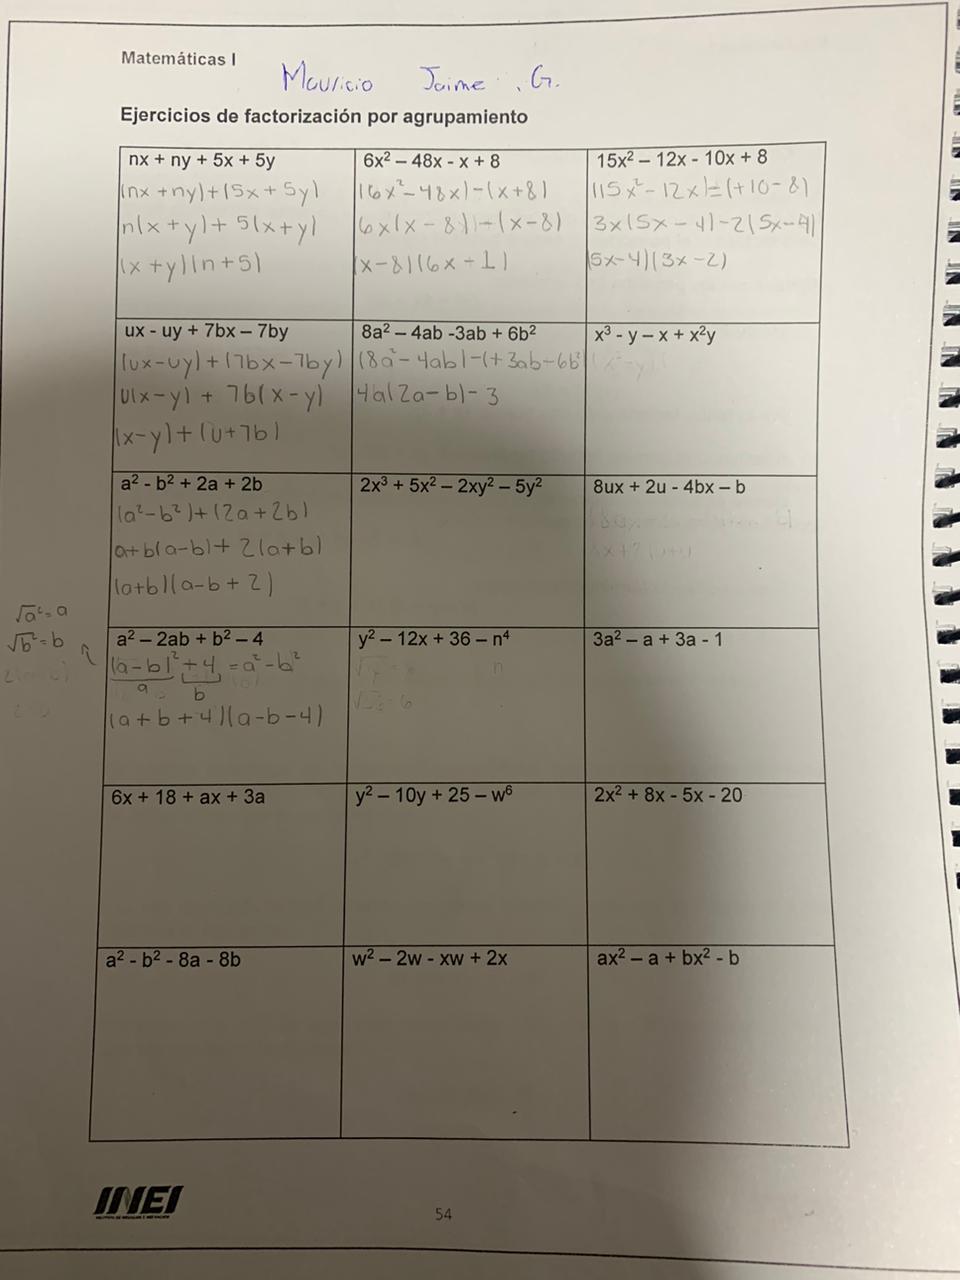 Matemáticas I
Mauricio Jaime . G.
Ejercicios de factorización por agrupamiento
nx + ny + 5x + 5y
(nx + ny)+(5x + 5y)
n(x + y)+ 5(x+y)
(x + y)(n+5)
6x² – 48x - x + 8
(6x²-48x)-(x+8)
6x(x - 8)-(x-8)
(x-8)(6x-1)
15x² – 12x - 10x + 8
(15x²-12x)-(+10-8)
3x(5x-4)-2(5x-4)
(5x-4)(3x-2)
ux - uy + 7bx – 7by
(ux-uy)+(7bx-7by)
U(x-y) + 7b(x-y)
(x-y)+(u+7b)
8a² – 4ab -3ab + 6b²
(8a²-4ab)-(+3ab-6b²
4a(2a-b)-3
x³ - y – x + x²y
a² - b² + 2a + 2b
(a²-b²)+(2a+2b)
a+b(a-b)+ 2(a+b)
(a+b)(a-b+2)
2x³ + 5x² – 2xy² – 5y²
8ux + 2u - 4bx – b
√a²=a
√b²=b
a² – 2ab + b² – 4
(a-b)²+4 = a²-b²
a b
(a+b+4)(a-b-4)
y² – 12x + 36 – n⁴
n
3a² – a + 3a - 1
6x + 18 + ax + 3a
y² – 10y + 25 – w⁶
2x² + 8x - 5x - 20
a² - b² - 8a - 8b
w² – 2w - xw + 2x
ax² – a + bx² - b
INEI
54